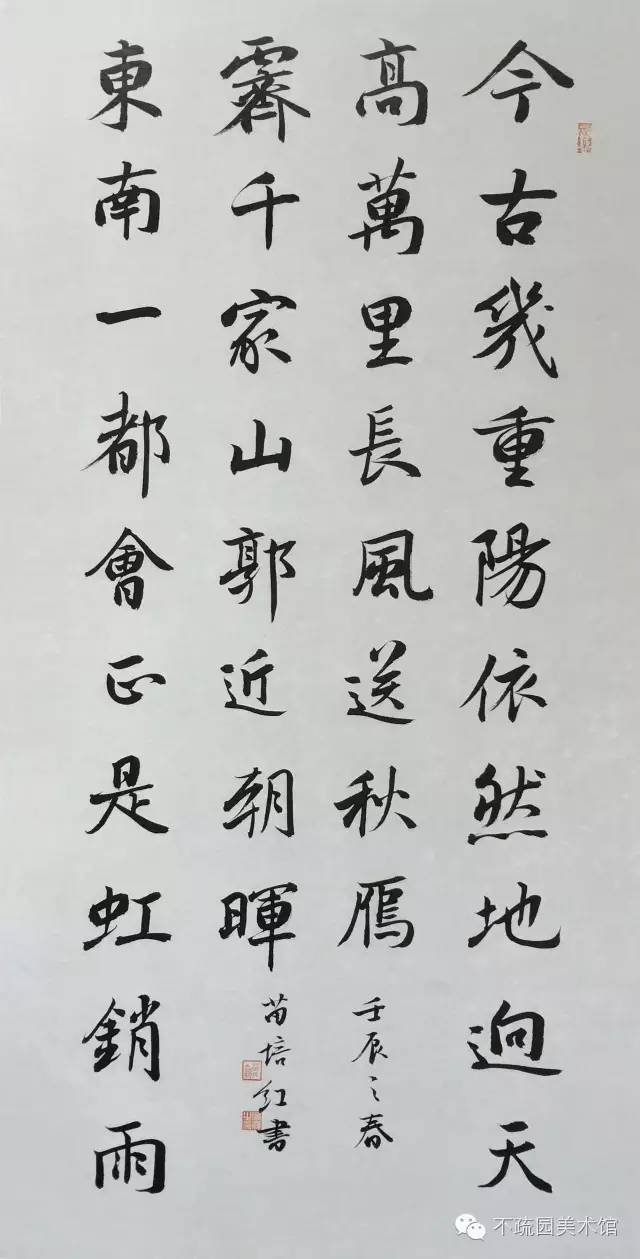 今古幾重陽依然地逈天
高萬里長風送秋鴈
東南一都會正是虹銷雨
霽千家山郭近朝暉
壬辰之春
苗培红書
不疏园美术馆